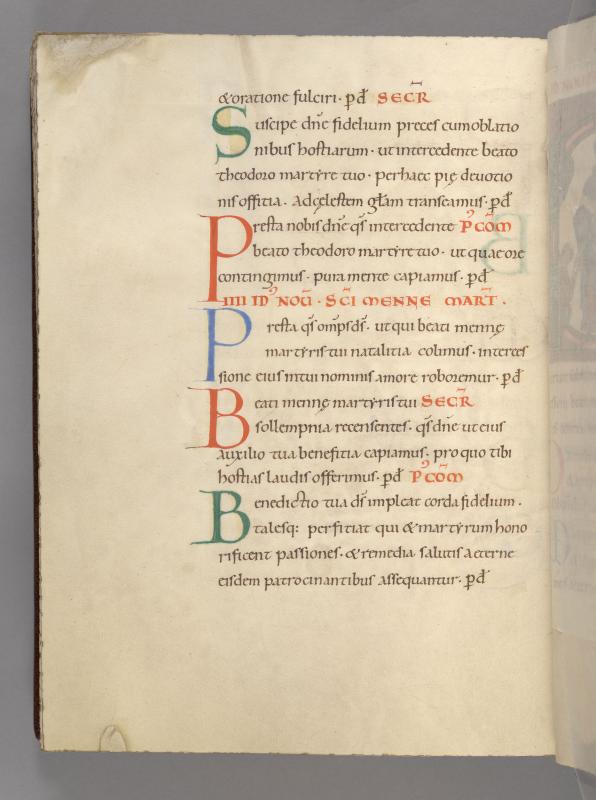 &oratione fulciri· p̄d SECR̄
Suscipe dn̄e fidelium preces cumoblatio
nibus hostiarum· utintercedente beato
theodoro martẏre tuo· perhaec pię deuotio
nis offitia· Adcęlestem gl̄am transeamus· p̄d
Presta nobis dn̄e qs̄ intercedente P᾿CŌM
beato theodoro martẏre tuo· ut quae ore
contingimus· pura mente capiamus· p̄d
IIII ID᾿ NOŪ· SC̄I MENNE MART̄·
Presta qs̄ omp̄s ds̄· ut qui beati mennę
martẏris tui natalitia colimus· interces
sione eius intui nominis amore roboremur· p̄d
Beati mennę martẏris tui SECR̄
sollempnia recensentes· qs̄ dn̄e ut eius
auxilio tua benefitia capiamus· pro quo tibi
hostias laudis offerimus· p̄d P᾿CŌM
Benedictio tua ds̄ impleat corda fidelium·
talesq: perfitiat qui & martẏrum hono
rificent passiones· & remedia salutis aeterne
eisdem patrocinantibus assequantur· p̄d